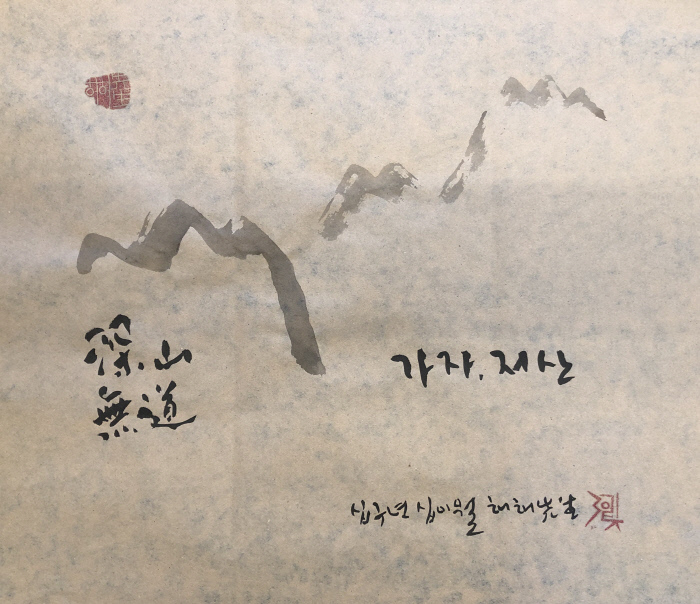 深山
無道
가자, 저산
십구년 십이월 해해先生